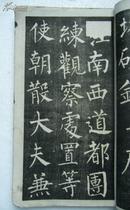 江南西道都團
練觀察處置等
使朝散大夫兼